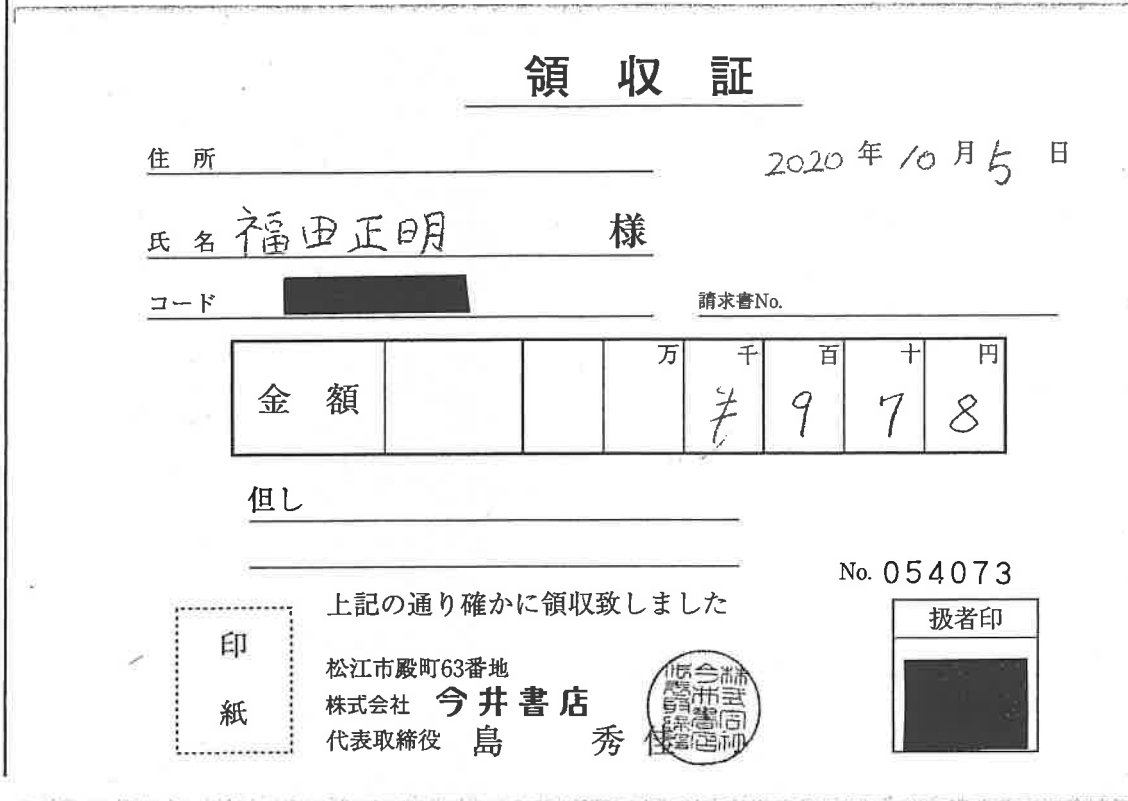 領収証
住所
2020年10月5日
氏名 福田正明 様
コード
請求書No.
金額 万 千 百 十 円
¥ 9 7 8
但し
No. 054073
上記の通り確かに領収致しました
扱者印
印紙
松江市殿町63番地
株式会社 今井書店
代表取締役 島 秀佳